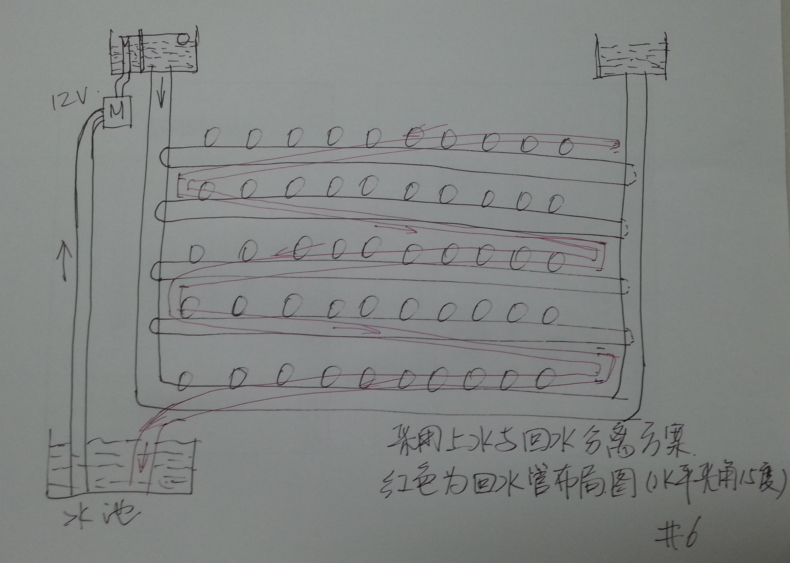 12V
M
采用上水与回水分离方案.
红色为回水管布局图(水平夹角15度)
水池
#6